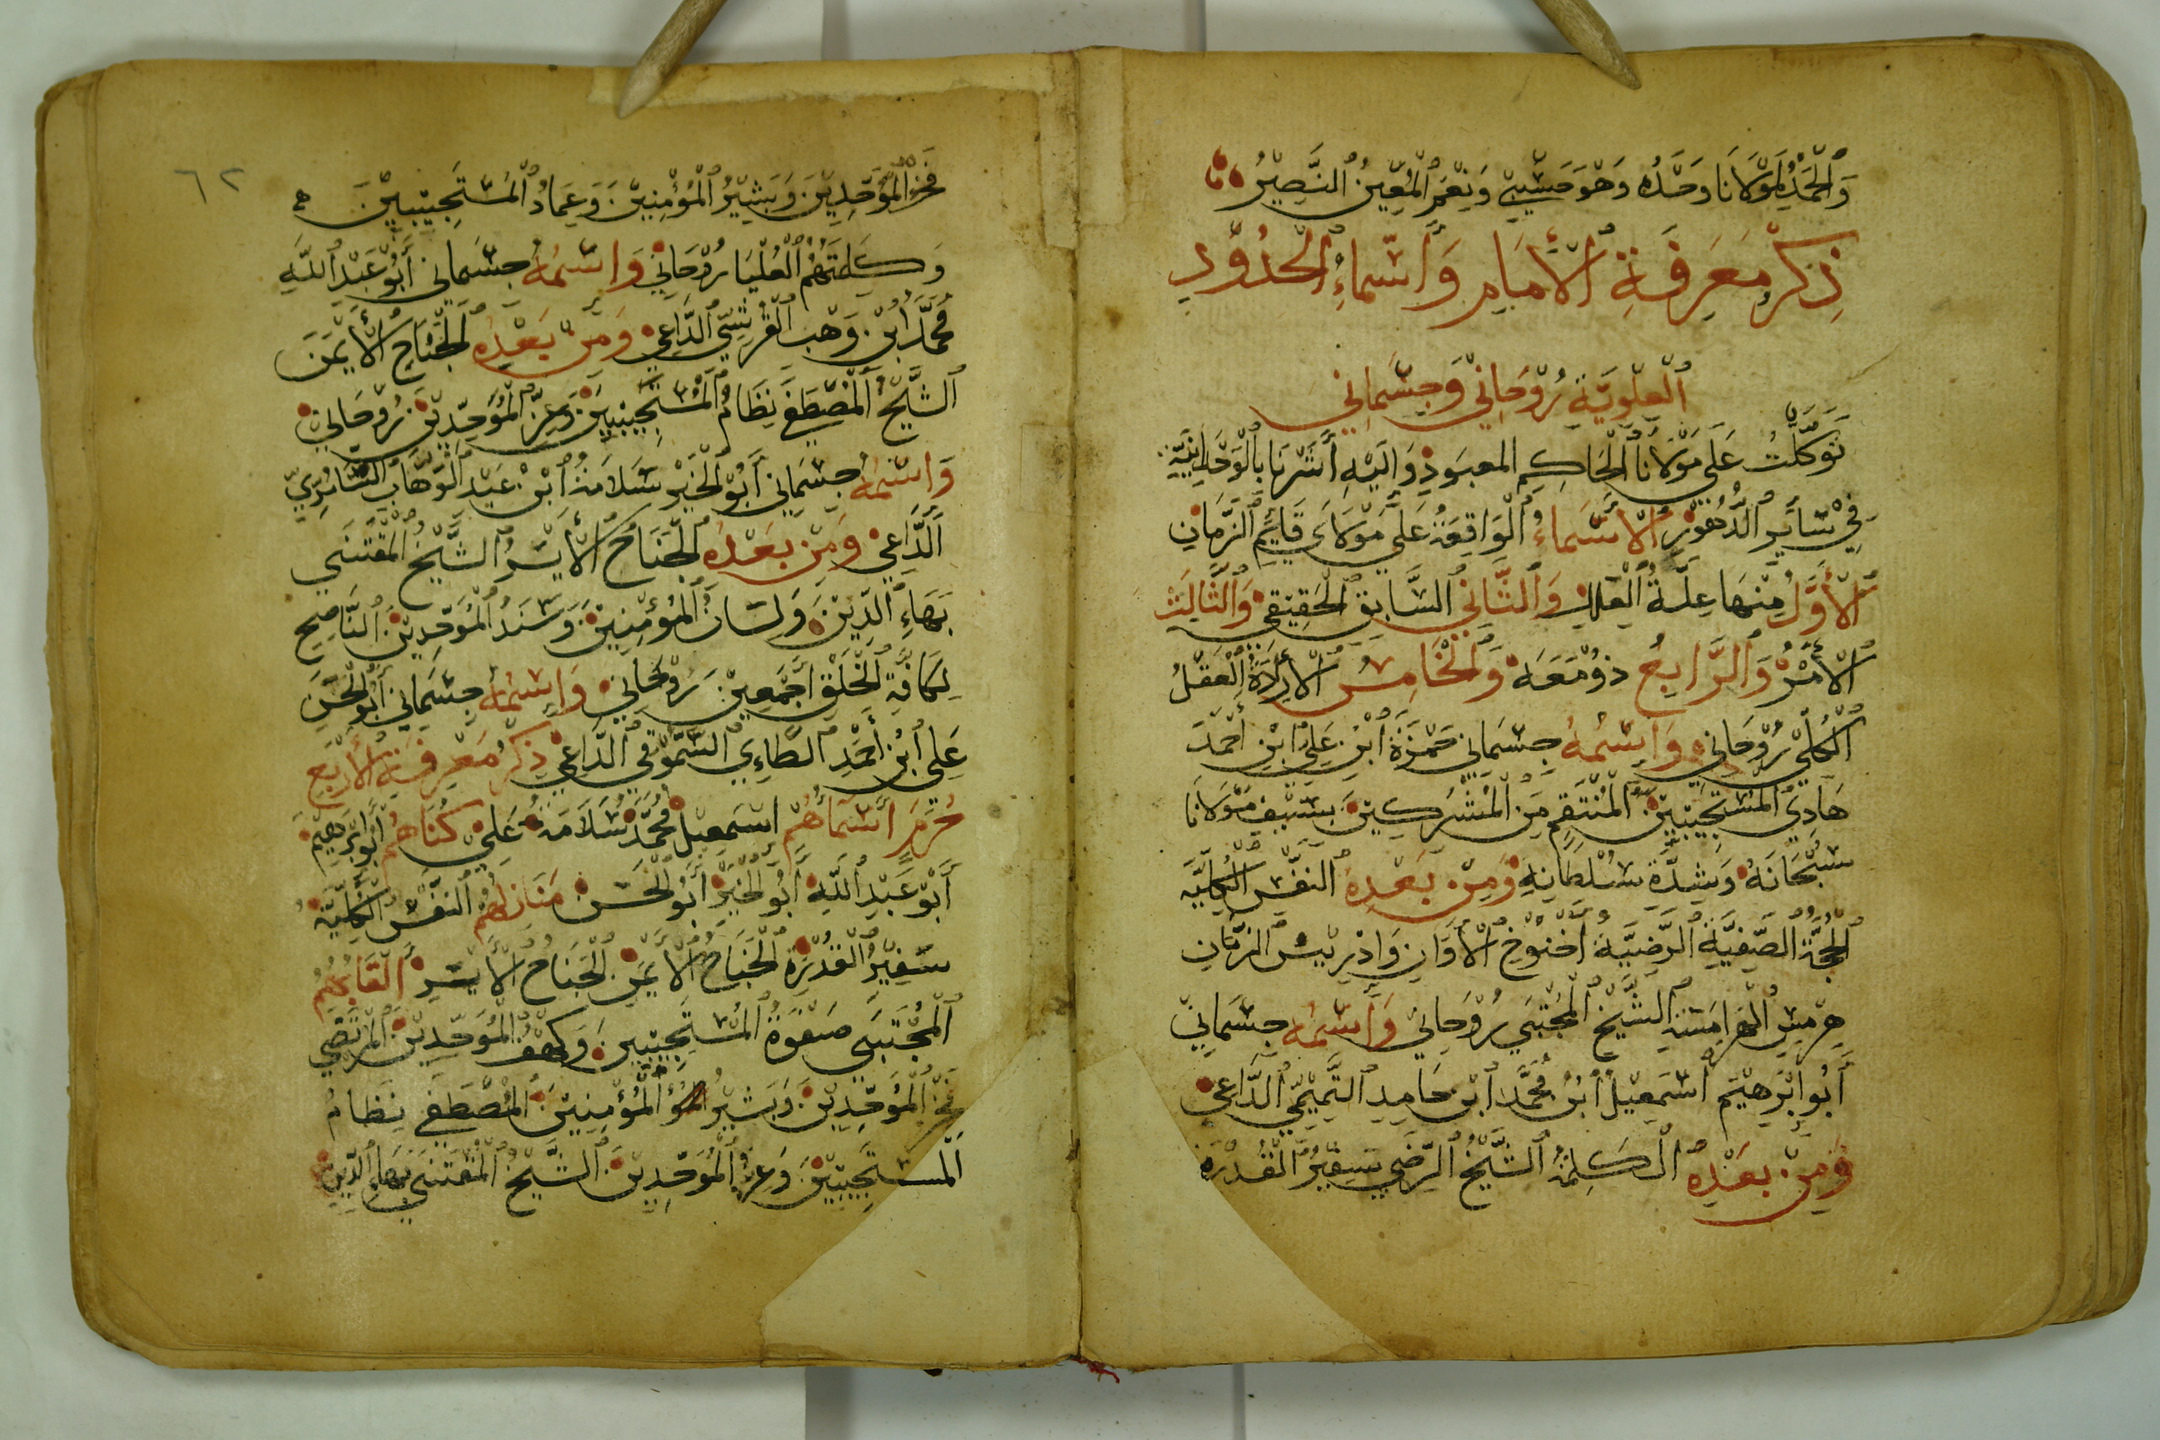 وَالْحَمْدُ لِمَوْلَانَا وَحْدَهُ وَهُوَ حَسْبِي وَنِعْمَ الْمُعِينُ النَّصِيرُ
ذِكْرُ مَعْرِفَةِ الْأَمَامِ وَأَسْمَاءُ الْحُدُودِ
الْعِلْوِيَّةِ رُوْحَانِي وَجِسْمَانِي
تَوَكَّلْتُ عَلَى مَوْلَانَا الْحَاكِمِ المعبود وَإِلَيْهِ أَشَرْنَا بِالْوَحْدَانِيَّة
فِي سَائِرِ الدُّهُورِ الْأَسْمَاءُ الْوَاقِعَةُ عَلَى مَوْلَايَ قَايِمِ الزَّمَانِ
الْأَوَّلُ مِنْهَا عِلَّةُ الْعِلَلِ وَالثَّانِي السَّابِقُ الْحَقِيقِي وَالثَّالِثُ
الْأَمْرُ وَالرَّابِعُ ذُوْمَعَهْ وَالْخَامِسُ الْأَرَادَةُ الْعَقْلُ
الْكُلِّي رُوْحَانِي وَاسْمُهُ جِسْمَانِي حَمْزَةُ ابْنُ عَلِي ابْنِ أَحْمَدَ
هَادِي الْمُسْتَجِيْبِيْنَ الْمُنْتَقِمِ مِنَ الْمُشْرِكِيْنَ بِسَيْفِ مَوْلَانَا
سُبْحَانَهُ وَشِدَّةِ سُلْطَانِهِ وَمِنْ بَعْدِهِ النَّفْسُ الْكُلِّيَّه
الْحُجَّةُ الصَّفِيَّةُ الرَّضِيَّةُ أَخْنُوْخُ الْأَوَانِ وَادْرِيْسُ الزَّمَانِ
هِرْمِسُ الْهَرَامِسَةِ الشَّيْخُ الْمُجْتَبَى رُوْحَانِي وَاسْمُهُ جِسْمَانِي
أَبُو ابْرَهِيْم اسْمَعِيْلُ ابْنُ مُحَمَّد ابْنِ حَامِدِ التَّمِيْمِي الدَّاعِي
وَمِنْ بَعْدِهِ الْكَلِمَةُ الشَّيْخُ الرَّضِي سَفِيْرُ الْقُدْرَة
٦٢
فَخْرُ الْمُوَحِّدِيْنَ وَبَشِيْرُ الْمُؤْمِنِيْنَ وَعِمَادُ الْمُسْتَجِيْبِيْنَ
وَكَلِمَتَهُمُ الْعُلْيَا رُوْحَانِي وَاسْمُهُ جِسْمَانِي أَبُو عَبْدِ اللَّهِ
مُحَمَّدُ ابْنُ وَهْبِ الْقُرَشِيّ الدَّاعِي وَمِنْ بَعْدِهِ الْجَنَاحُ الْأَيْمَنَ
الشَّيْخُ الْمُصْطَفَى نِظَامُ الْمُسْتَجِيْبِيْنَ وَعِزُّ الْمُوَحِّدِيْنَ رُوْحَانِي
وَاسْمُهُ جِسْمَانِي أَبُو الْخَيْرِ سَلَامَةُ ابْنُ عَبْدِ الْوَهَّابِ السَّامِرِّيِّ
الدَّاعِي وَمِنْ بَعْدِهِ الْجَنَاحُ الْأَيْسَرُ الشَّيْخُ الْمُقْتَنَى
بَهَاءِ الدِّيْنِ وَلِسَانُ الْمُؤْمِنِيْنَ وَسَنَدُ الْمُوَحِّدِيْنَ النَّاصِحُ
لِكَافَّةِ الْخَلْقِ أَجْمَعِيْنَ رُوْحَانِي وَاسْمُهُ جِسْمَانِي أَبُو الْحَسَنِ
عَلِي ابْنُ أَحْمَدِ الطَّاءِي السَّمُّوْقِي الدَّاعِي ذِكْرُ مَعْرِفَةِ الْأَرْبَعِ
حُرَمِ أَسْمَاهُمْ اسْمَعِيل مُحَمَّد سَلَامَة عَلِي كُنَاهُمْ أَبُو ابْرَهِيْمَ
أَبُو عَبْدِ اللَّهِ أَبُو الْخَيْرِ أَبُو الْحَسَن مَنَازِلهُمُ النَّفْسُ الْكُلِّيَّة
سَفِيْرُ الْقُدْرَة الْجَنَاحُ الْأَيْمَنِ الْجَنَاحُ الْأَيْسَرِ أَلْقَابُهُمُ
الْمُجْتَبَى صَفْوَةُ الْمُسْتَجِيْبِيْنَ وَكَهْفُ الْمُوَحِّدِيْنَ الْمُرْتَضِي
فَخْرُ الْمُوَحِّدِيْنَ وَبَشِيْرُ الْمُؤْمِنِيْنَ الْمُصْطَفَى نِظَامُ
الْمُسْتَجِيْبِيْنَ وَعِزُّ الْمُوَحِّدِيْنَ الشَّيْخُ الْمُقْتَنَى بَهَاءِ الدِّيْنِ